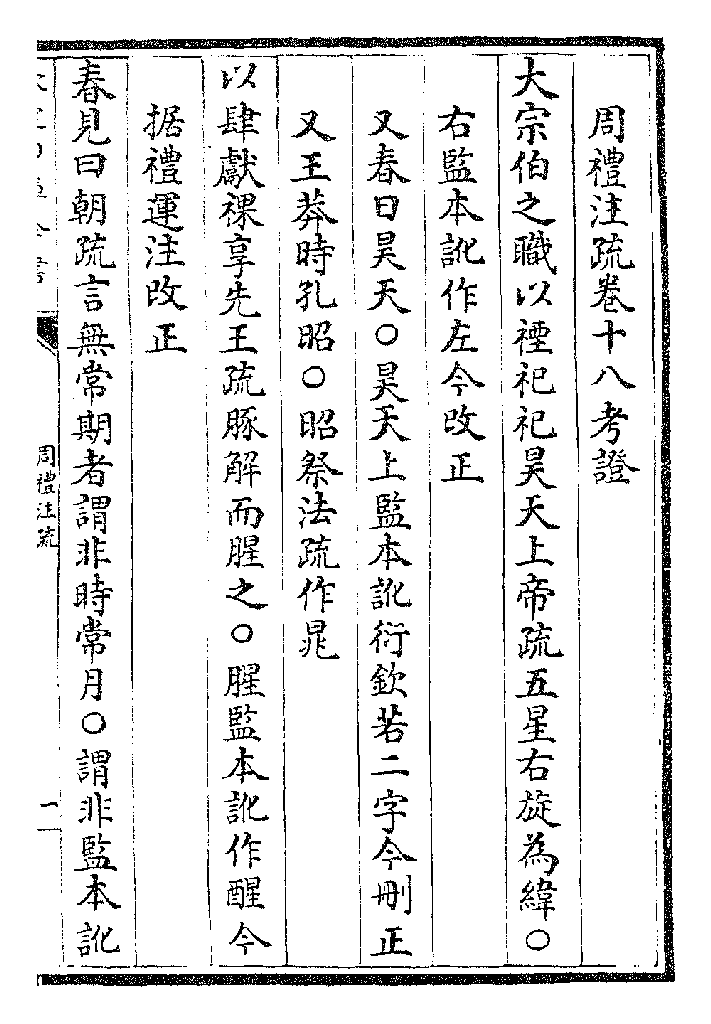 周禮注疏卷十八考證
大宗伯之職以禋祀祀昊天上帝疏五星右旋為緯○
右監本訛作左今改正
又春曰昊天○昊天上監本訛衍欽若二字今刪正
又王莽時孔昭○昭祭法疏作晁
以肆獻祼享先王疏豚解而腥之○腥監本訛作醒今
据禮運注改正
春見曰朝疏言無常期者謂非時常月○謂非監本訛
周禮注疏
一